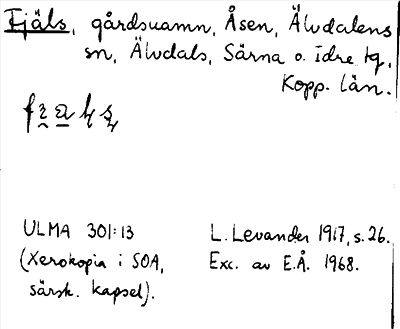 Fjäls, gårdsnamn, Åsen, Älvdalens
sn, Älvdals, Särna o. Idre tg,
Kopp. län.
ULMA 301:13
(Xerokopia i SOA,
särsk. kapsel).
L. Levander 1917, s. 26.
Exc. av E.Å. 1968.